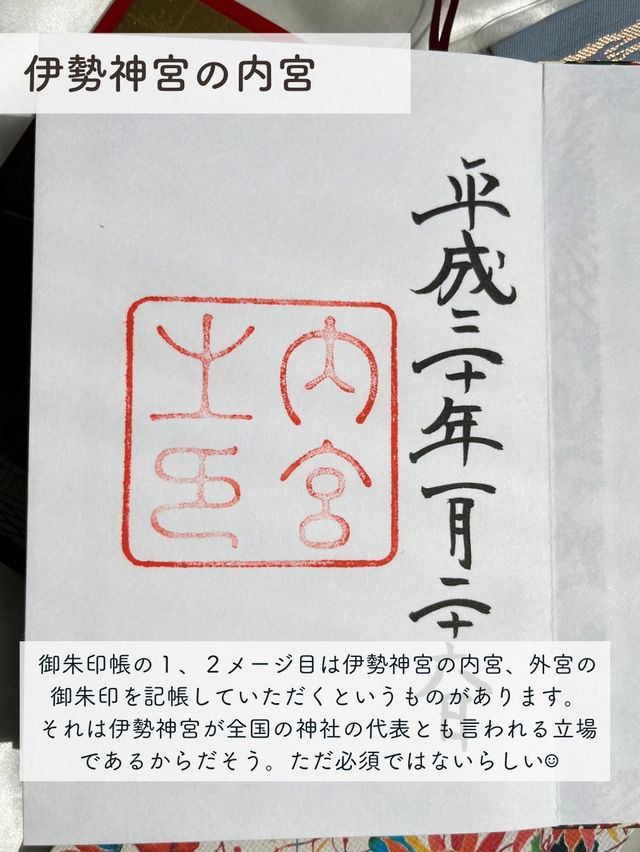 伊勢神宮の内宮
平成三十年一月二十
内宮
之印
御朱印帳の１、２メージ目は伊勢神宮の内宮、外宮の
御朱印を記帳していただくというものがあります。
それは伊勢神宮が全国の神社の代表とも言われる立場
であるからだそう。ただ必須ではないらしい☺